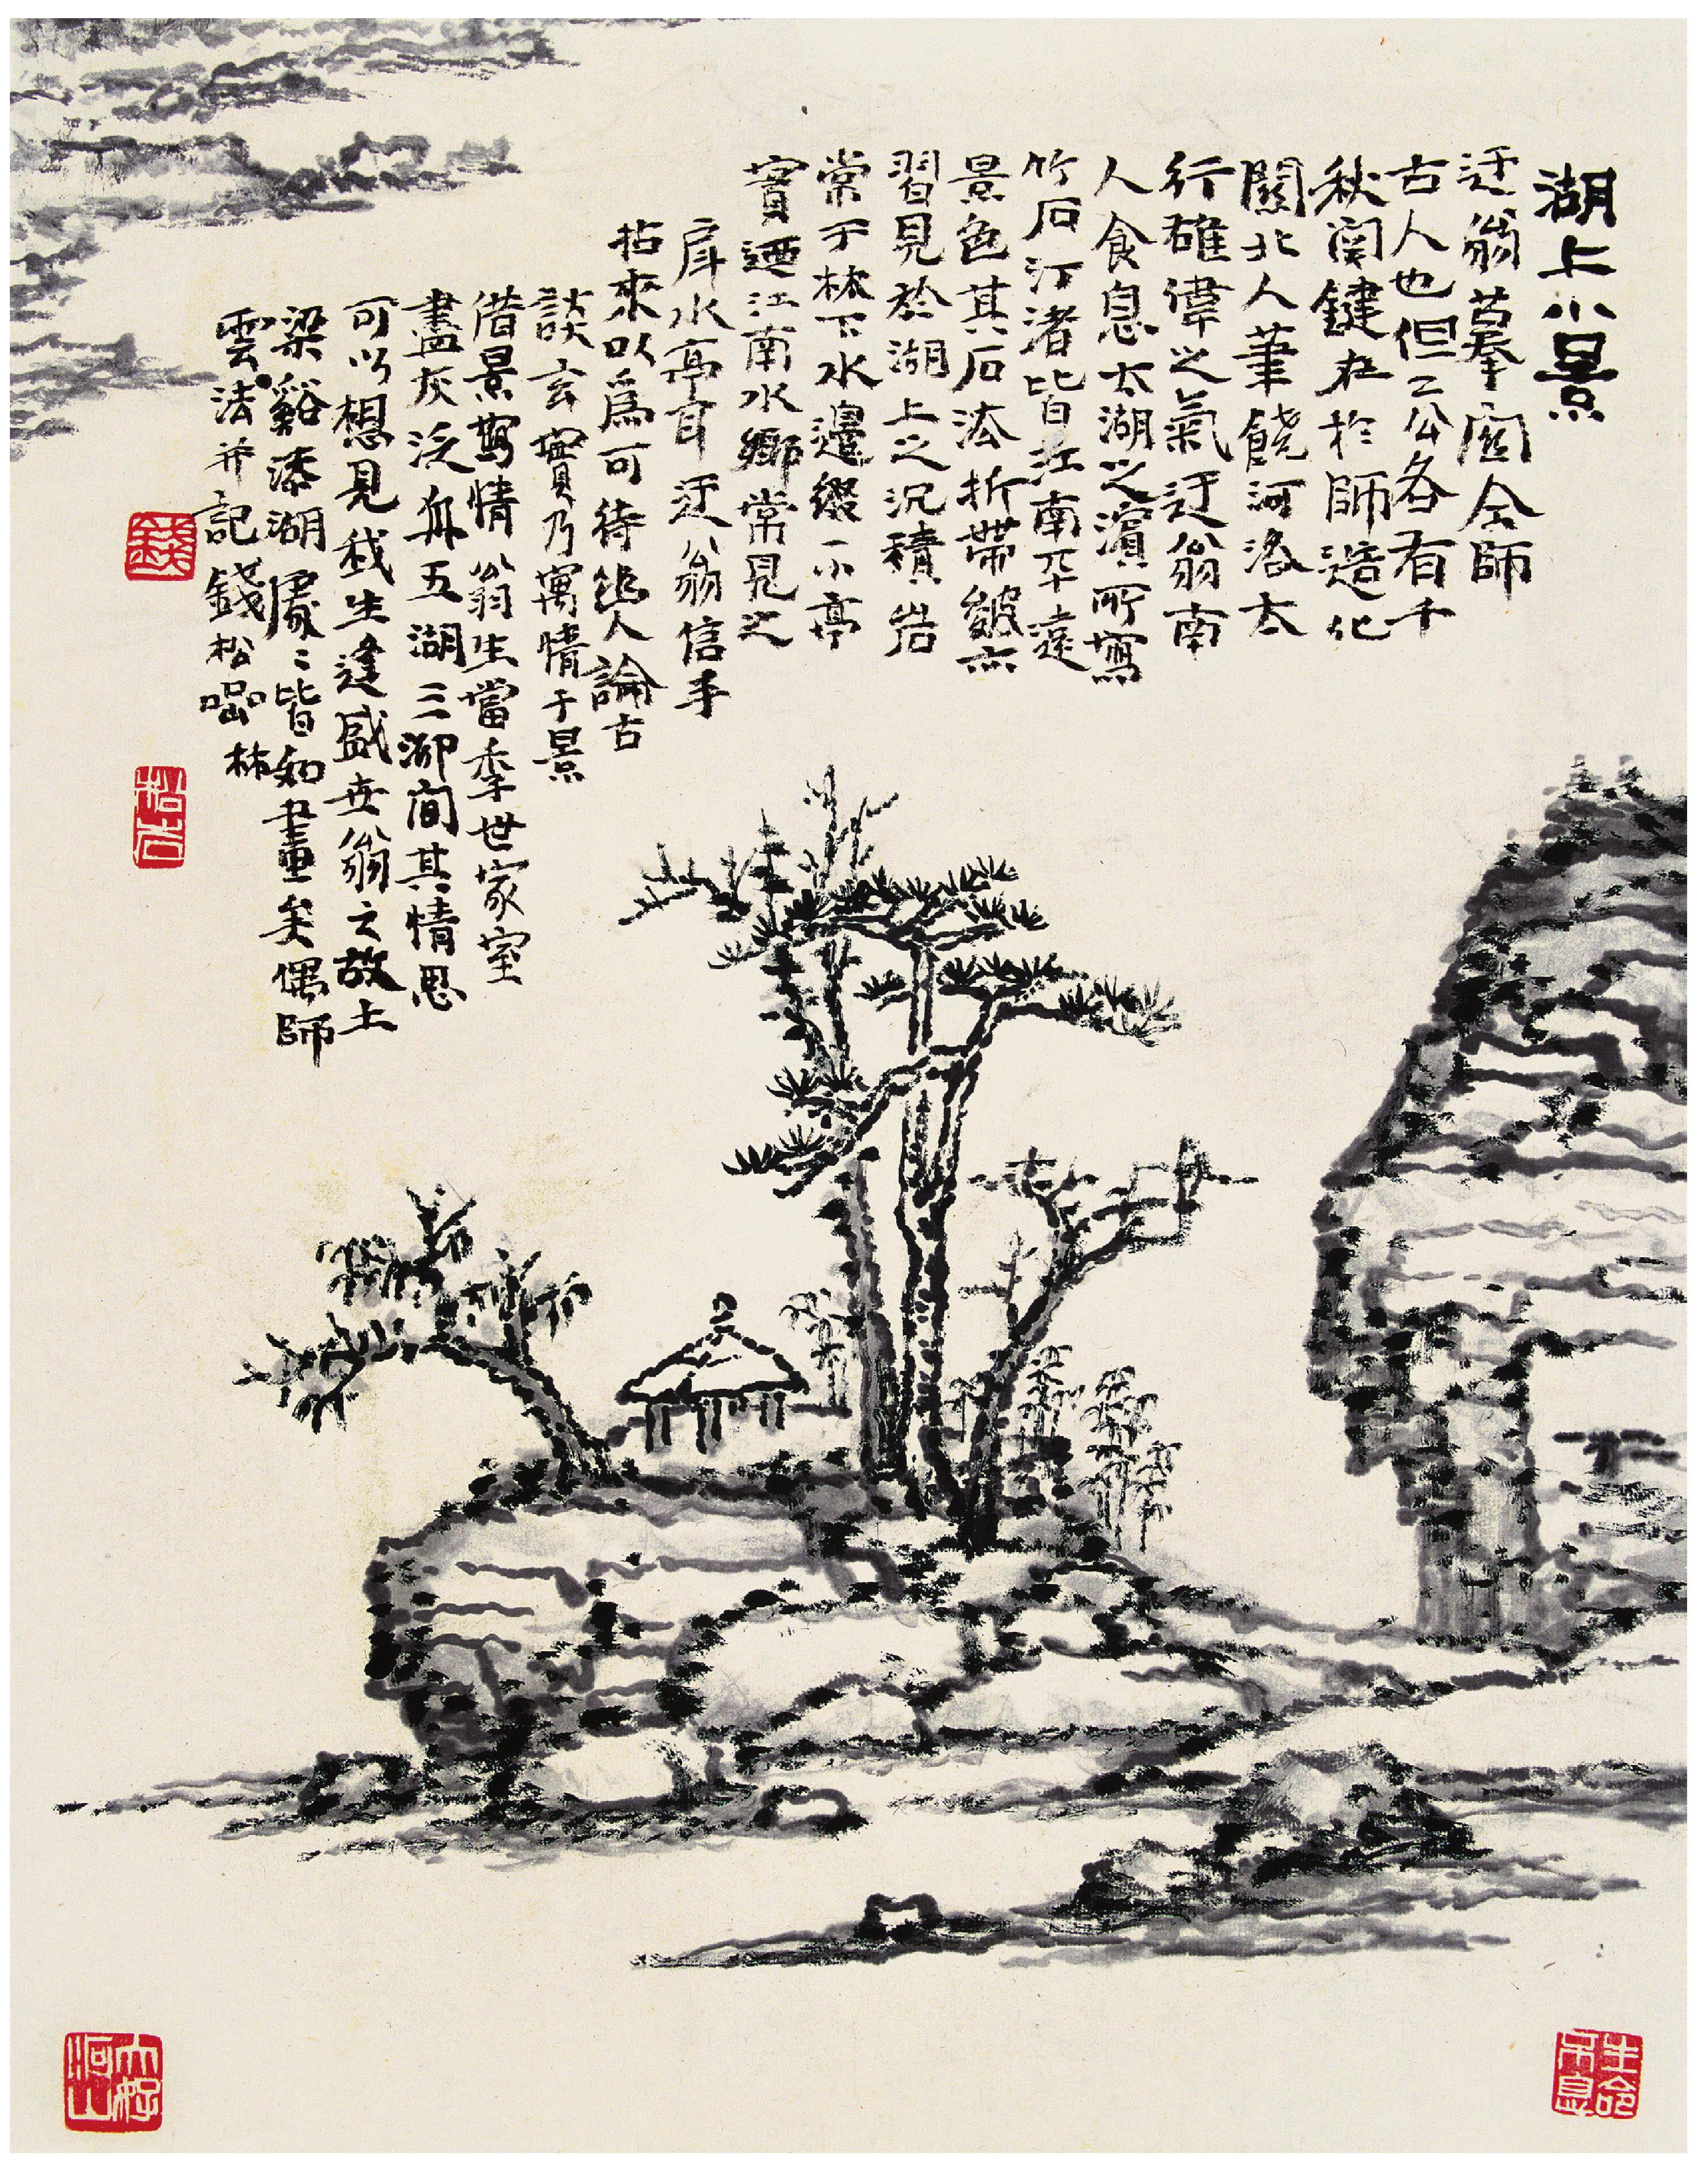 湖上小景
迂翁摹關仝師
古人也但二公各有千
秋關鍵在於師造化
關北人筆饒河洛太
行雄偉之氣迂翁南
人食息太湖之濱所寫
竹石汀渚皆江南平遠
景色其石法折帶皴亦
習見於湖上之沉積岩
常于林下水邊綴一小亭
實迺江南水鄉常見之
戽水亭耳迂翁信手
拈來以爲可待幽人論古
談玄實乃寓情于景
借景寫情翁生當季世家室
盡灰泛舟五湖三泖間其情思
可以想見我生逢盛世翁之故土
梁谿漆湖處〻皆如畫矣偶師
雲林法并記錢松嵒
錢
松嵒
大好河山
生命不息